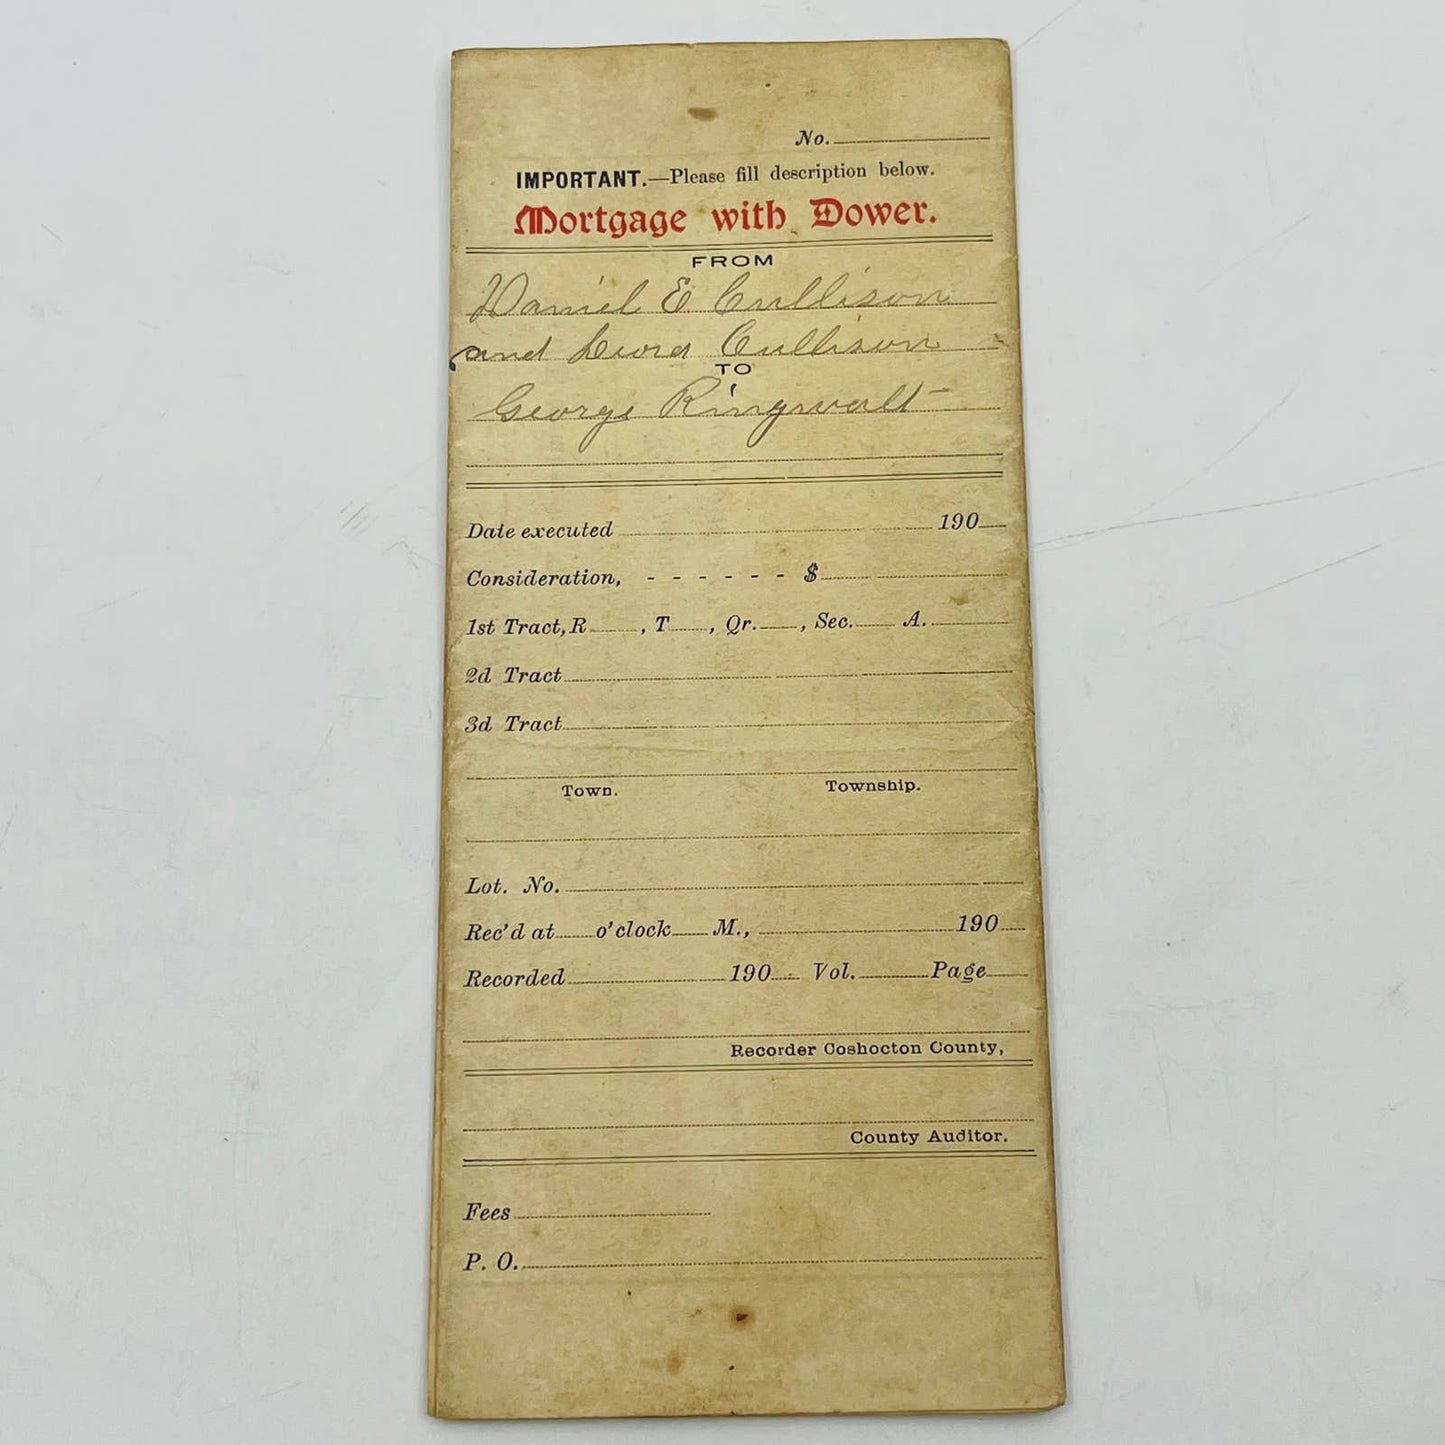 No.
IMPORTANT.—Please fill description below.
Mortgage with Dower.
FROM
Daniel E Cullison
and Cullison
TO
George Ringwalt
Date executed 190
Consideration, - - - - - - $
1st Tract, R , T , Qr. , Sec. A.
2d Tract
3d Tract
Town. Township.
Lot. No.
Rec'd at o'clock M., 190
Recorded 190 Vol. Page
Recorder Coshocton County,
County Auditor.
Fees
P. O.